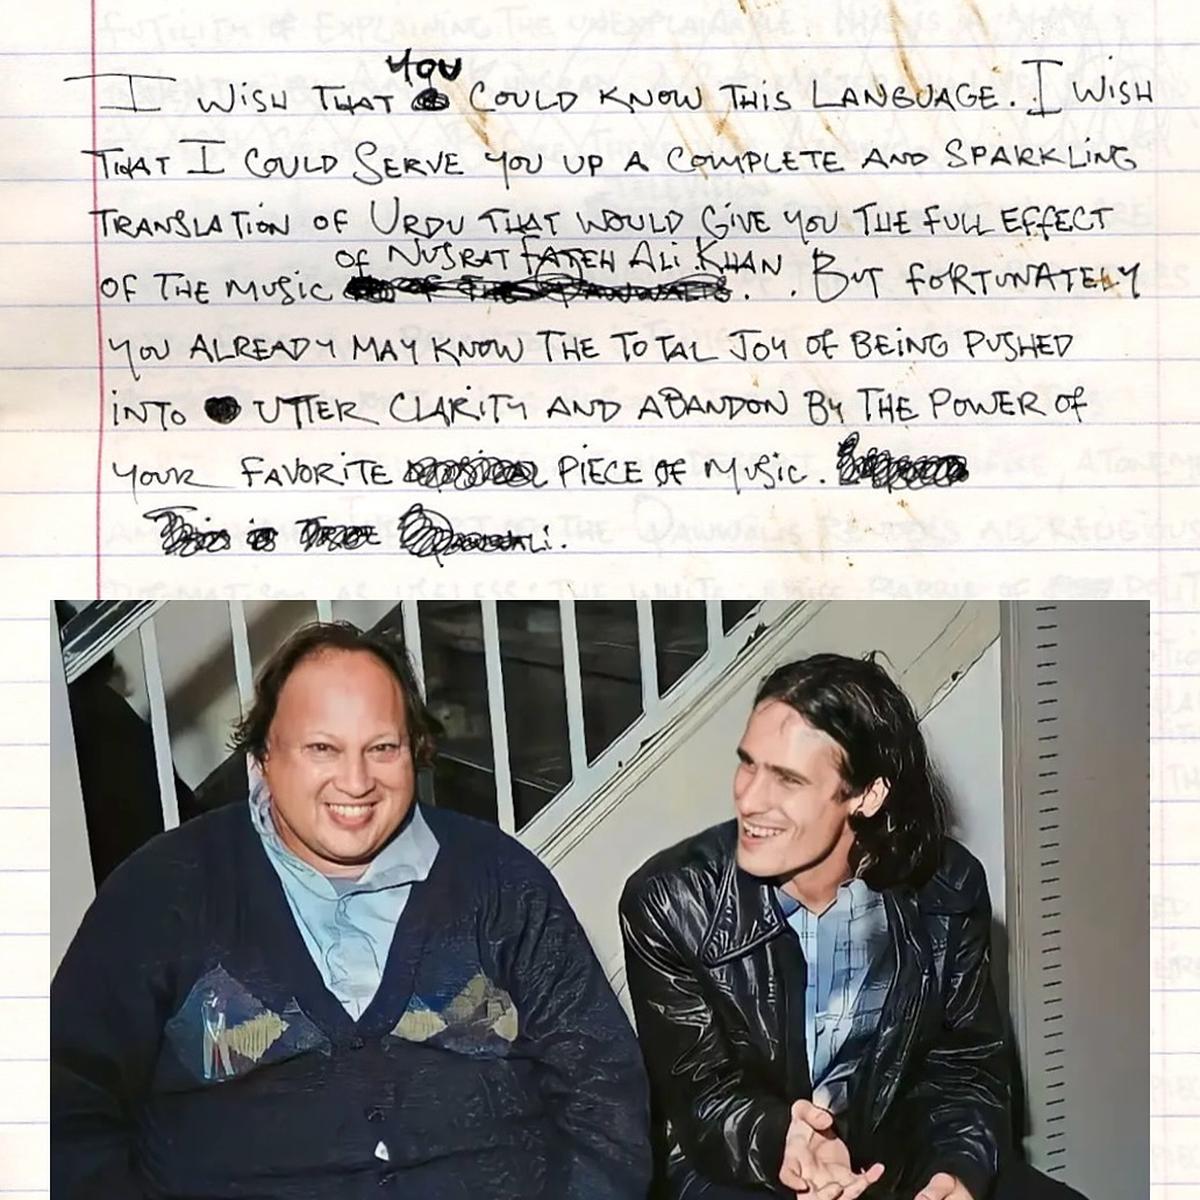 I WISH THAT YOU COULD KNOW THIS LANGUAGE. I WISH
THAT I COULD SERVE YOU UP A COMPLETE AND SPARKLING
TRANSLATION OF URDU THAT WOULD GIVE YOU THE FULL EFFECT
OF THE MUSIC OF NUSRAT FATEH ALI KHAN. BUT FORTUNATELY
YOU ALREADY MAY KNOW THE TOTAL JOY OF BEING PUSHED
INTO UTTER CLARITY AND ABANDON BY THE POWER OF
YOUR FAVORITE PIECE OF MUSIC.